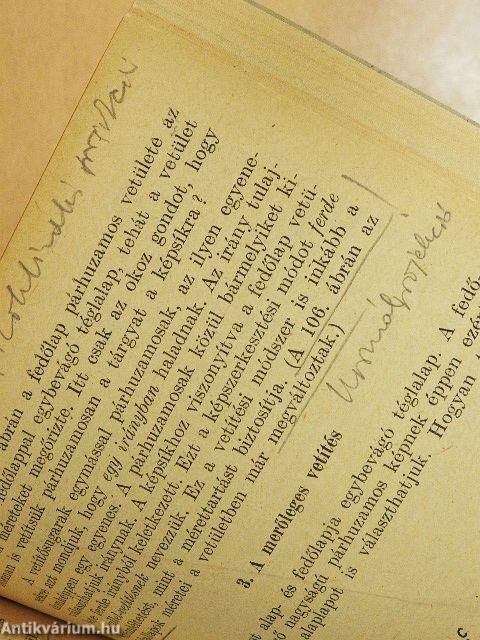 ábrán a fedőlap párhuzamos vetülete az
fedőlappal egybevágó téglalap, tehát a vetület
méreteket megőrizte. Itt csak az okoz gondot, hogy
is vetítsük párhuzamosan a tárgyat a képsíkra?
A vetítősugarak egymással párhuzamosak, az ilyen egyene-
azt mondjuk, hogy egy irányban haladnak. Az irány tulaj-
egy egyenes. A párhuzamosak közül bármelyiket ki-
iránynak. A képsíkhoz viszonyítva a fedőlap vetü-
ferde irányból keletkezett. Ezt a képszerkesztési módot ferde
nevezzük. Ez a vetítési módszer is inkább a
mint a mérettartást biztosítja. (A 106. ábrán az
méretei a vetületben már megváltoztak.)
Normálprojekció
3. A merőleges vetítés
alap- és fedőlapja egybevágó téglalap. A fedő-
nagyságú párhuzamos képnek éppen ezér
alaplapot is választhatjuk. Hogyan
Antikvárium.hu